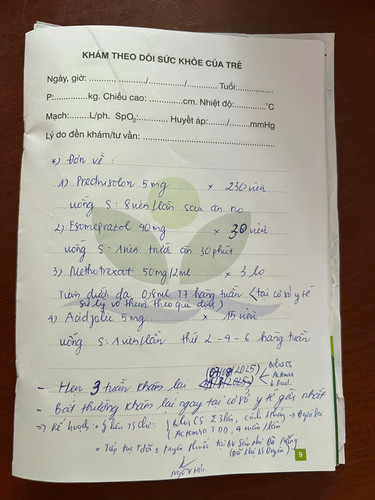 KHÁM THEO DÕI SỨC KHỎE CỦA TRẺ
Ngày, giờ: .........., ........../........../.......... Tuổi:..............
P:............kg. Chiều cao: ............cm. Nhiệt độ:...........°C
Mạch:........L/ph. SpO2:............ Huyết áp:......./........mmHg
Lý do đến khám/tư vấn: ....................................
*) Đơn về :
1) Prednisolon 5mg x 230 viên
uống S: 8 viên/lần sau ăn no
2) Esomeprazol 40mg x 30 viên
uống S: 1 viên trước ăn 30 phút
3) Methotrexat 50mg/2ml x 3 lọ
Tiêm dưới da 0,8ml T7 hàng tuần (tại cơ sở y tế
xử lý vỏ thuốc theo quy định)
4) Acid folic 5mg x 15 viên
uống S: 1 viên/lần thứ 2 - 4 - 6 hàng tuần
- Hẹn 3 tuần khám lại
Bolus CS
Actemra
- Bất thường khám lại ngay tại cơ sở y tế gần nhất
=> Kế hoạch :
Bolus CS
Actemra
4 tuần/lần
9